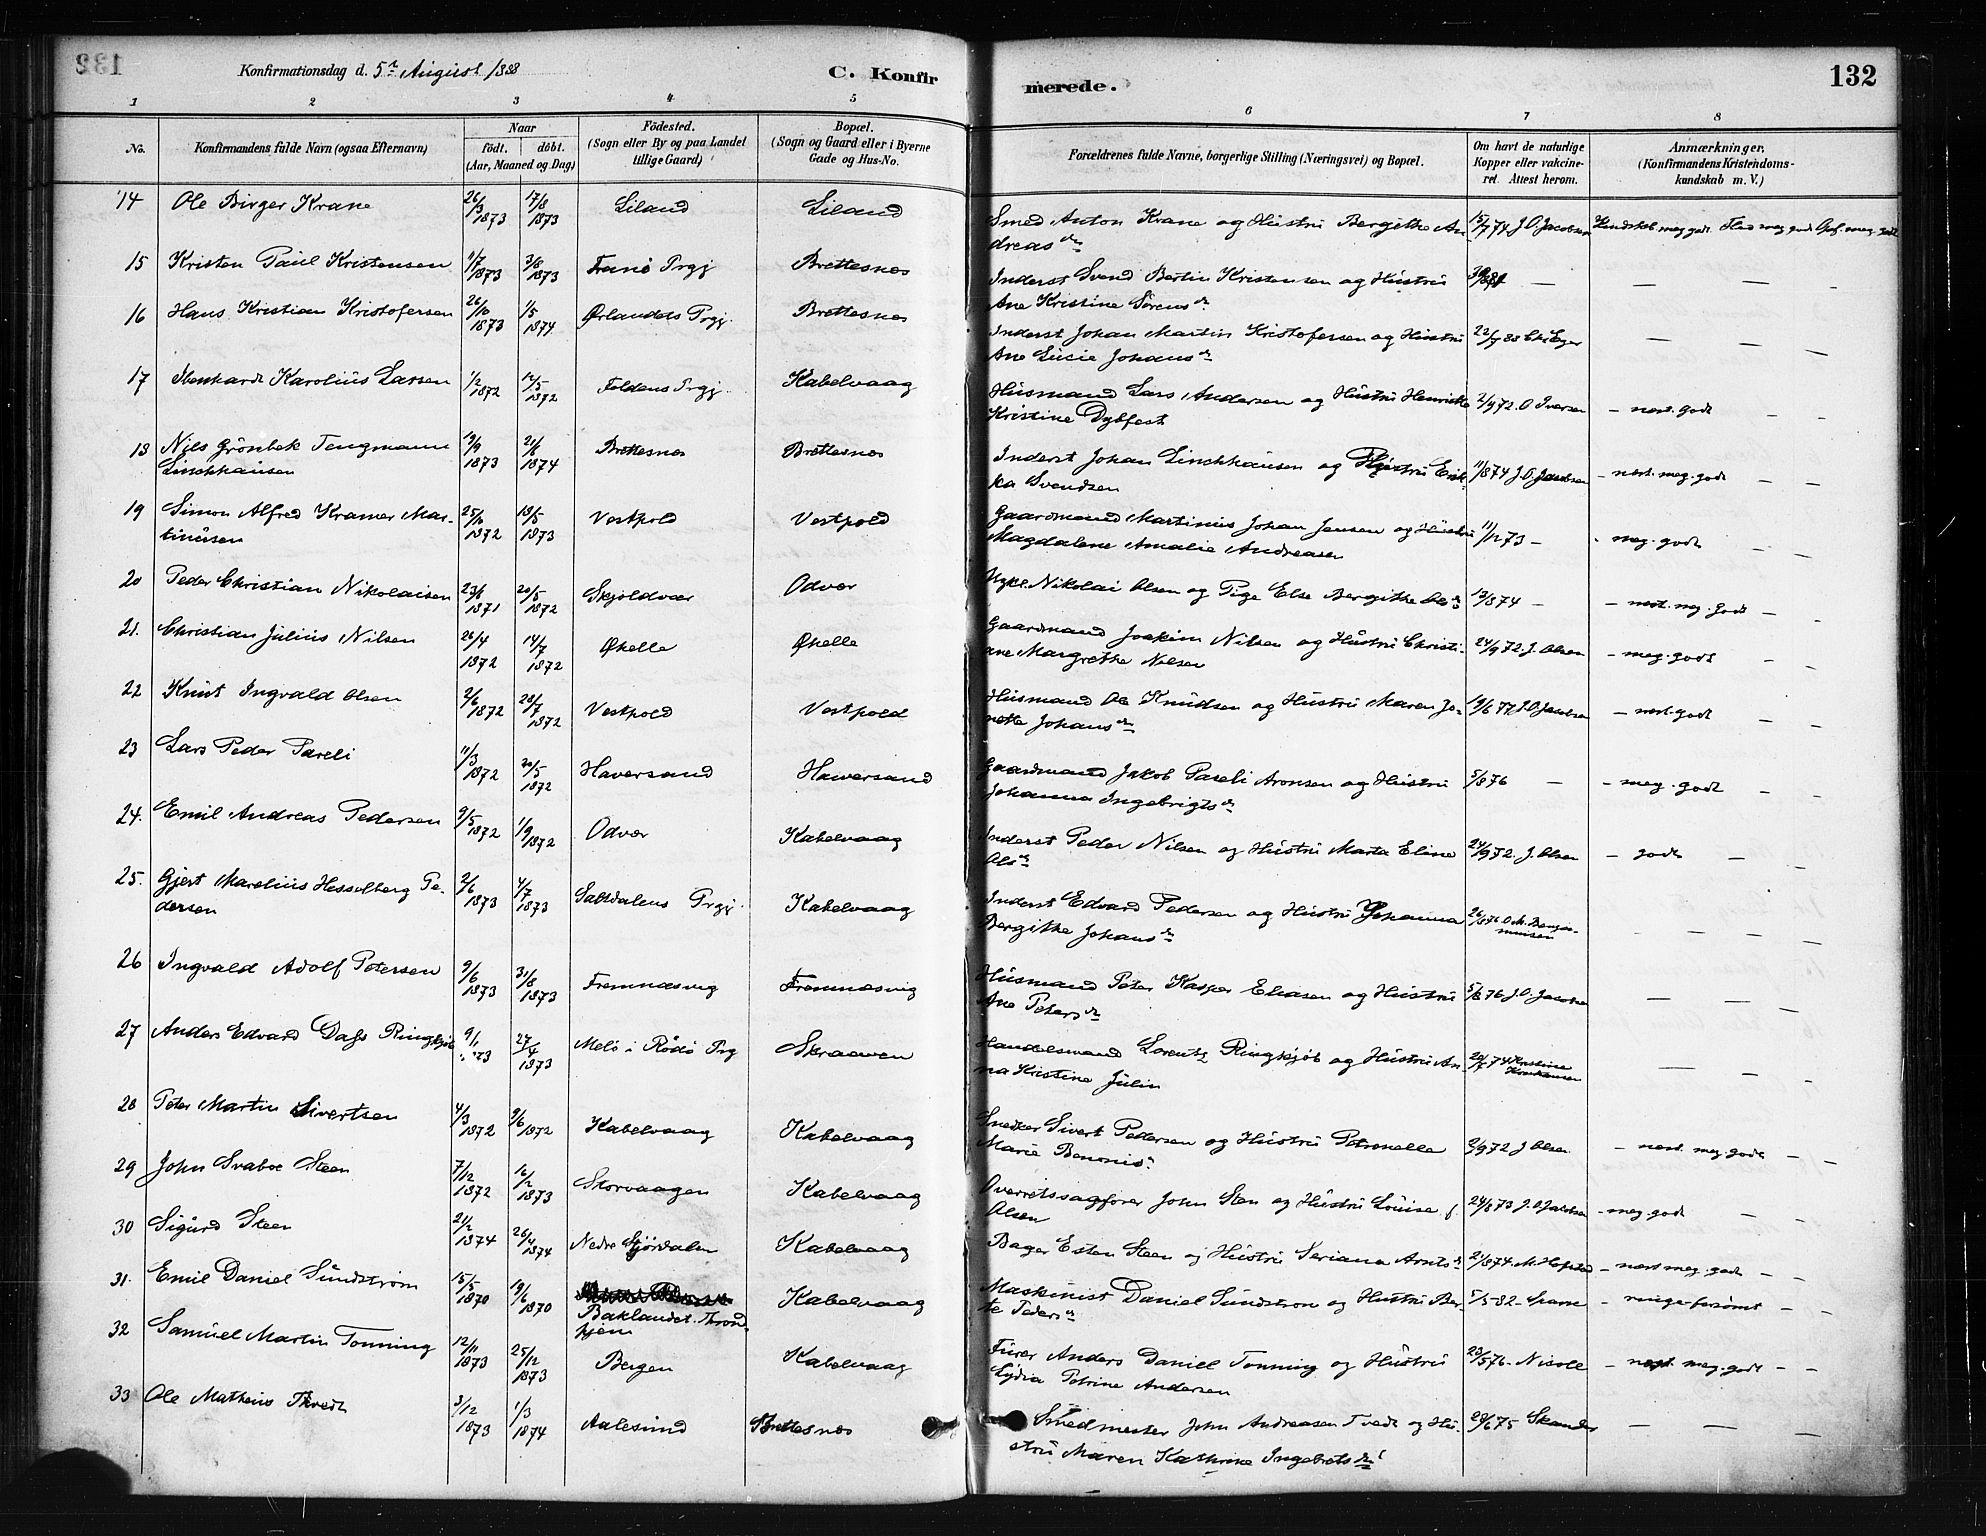 132
Konfirmationsdag d. 5te August 1888
C. Konfirmerede.
132
1 2 3 4 5 6 7 8
No.
Konfirmandens fulde Navn (ogsaa Efternavn)
Naar
födt. döbt.
(Aar, Maaned og Dag)
Födested.
(Sogn eller By og paa Landet
tillige Gaard)
Bopæl.
(Sogn og Gaard eller i Byerne
Gade og Hus-No.
Forældrenes fulde Navne, borgerlige Stilling (Næringsvei) og Bopæl.
Om havt de naturlige
Kopper eller vakcine-
ret. Attest herom.
Anmærkninger.
(Konfirmandens Kristendoms-
kundskab m. V.)
14 Ole Birger Krane 26/3 1873 17/8 1873 Liland Liland Smed Anton Krane og Hustru Bergitte An- 15/7 74 J. O. Jacobsen Kundskab meg godt Flid meg god Opf. meg. godt
dreasdr
15 Kristen Paul Kristensen 1/7 1873 3/8 1873 Franö Prgj Brettesnes Inderst Svend Bertin Kristensen og Hustru — — — —
Ane Kristine Sörensdr
16 Hans Kristian Kristofersen 26/10 1873 1/5 1874 Ørlandets Prgj. Brettesnes Inderst Johan Martin Kristofersen og Hustru 22/7 88 — — —
Ane Lucie Johansdr
17 Ibenhardt Karolius Larsen 1/2 1872 12/5 1872 Foldens Prgj. Kabelvaag Husmand Lars Andersen og Hustru Henrikke 2/9 72. O Iversen — nest. godt — —
Kristine Dybfest
18 Nils Grönbek Tengmann 19/9 1873 21/6 1874 Brettesnes Brettesnes Inderst Johan Linchhausen og Hustru Erik- 11/8 74 J. O. Jacobsen — nest. meg. godt — —
Linchhausen ka Svendsen
19 Simon Alfred Kramer Mar- 25/6 1872 18/5 1873 Vestpold Vestpold Gaardmand Martinius Johan Jensen og Hustru 11/12 73 — - meg. godt — —
tinusen Magdalene Amalie Andreasen
20 Peder Christian Nikolaisen 23/6 1871 20/5 1872 Skjoldvær Odvær Ugkl. Nikolai Olsen og Pige Else Bergitte Olsdr 13/8 74 — — nest. meg. godt —
21. Christian Julius Nilsen 26/4 1872 14/7 1872 Øhelle Øhelle Gaardmand Joakim Nilsen og Hustru Christi- 24/9 72. J. Olsen — meg. godt — —
ane Margrethe Nilsen
22 Knut Ingvald Olsen 2/6 1872 28/7 1872 Vestpold Vestpold Husmand Ole Knudsen og Hustru Maren Je- 19/6 77 J. O. Jacobsen — nest. godt — —
nette Johansdr
23 Lars Peder Pareli 11/3 1872 20/5 1872 Haversand Haversand Gaardmand Jakob Pareli Aronsen og Hustru 5/8 76 — — meg. godt — —
Johanna Ingebrigtsdr
24. Emil Andreas Pedersen 9/5 1872 1/9 1872 Odvær Kabelvaag Inderst Peder Nilsen og Hustru Marta Eline 24/9 72. J. Olsen — godt — —
Olsdr
25. Gjert Marelius Hesselberg Pe- 2/6 1873 4/7 1873 Saltdalens Prgj. Kabelvaag Inderst Edvard Pedersen og Hustru Johanna 26/8 76 — — — —
dersen Bergitte Johansdr
26 Ingvald Adolf Petersen 9/6 1873 31/8 1873 Fremnæsvig Fremnæsvig Husmand Peter Kasper Eliasen og Hustru 5/8 76 J. O. Jacobsen — — — —
Ane Petersdr
27 Anders Edvard Dass Ringkjöb 9/1 73 27/4 1873 Melö i Rödö Prg Skraaven Handelsmand Lorentz Ringkjöb og Hustru An- 74 Kristine — — — —
na Kristine Julin
28 Peter Martin Sivertsen 4/3 1872 9/6 1872 Kabelvaag Kabelvaag Snedker Sivert Pedersen og Hustru Petronelle 2/9 72 J Olsen — nest. meg. godt — —
Marie Benonisdr
29 John Svaboe Steen 7/12 1872 16/2 1873 Storvaagen Kabelvaag Overretssagfører John Sten og Hustru Louise f. 24/8 73 J. O. Jacobsen — meg. godt — —
Olsen
30 Sigurd Steen 21/2 1874 26/4 1874 Nedre Stjördalen Kabelvaag Bager Esten Steen og Hustru Seriana Arntsdr 21/8 74 M Hofstad — nest meg. godt — —
31. Emil Daniel Sundström 15/5 1870 19/6 1870 Kabelvaag Maskinist Daniel Sundstrom og Hustru Ber- 5/5 82 — Sparre — ringe forsömt — —
Baklandet. Thrond- te Pedersdr
hjem
32 Samuel Martin Tonning 12/11 1873 25/12 1873 Bergen Kabelvaag Furer Anders Daniel Tonning og Hustru 23/5 76 — Nicole — nest meg. godt — —
Lydia Petrine Andersen
33 Ole Matheus Thvedt 3/12 1873 1/3 1874 Aalesund Brettesnes Smedmester John Andreasen Tvedt og Hu- 28/6 75 — — —
stru Maren Kathrine Ingebretsdr